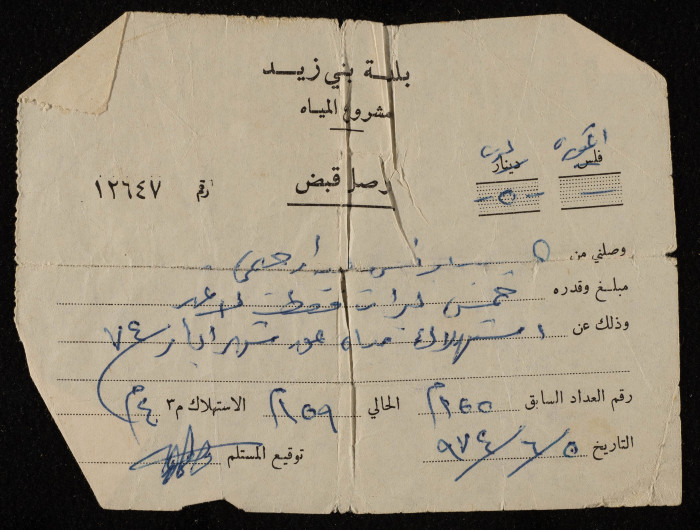 بلدية بني زيد
مشروع المياه
ليرة
دينار فلس
٥
وصل قبض
رقم ١٢٦٤٧
وصلني من
مبلغ وقدره خمس ليرات فقط لا غير
وذلك عن استهلاك مياه عن شهر أيار ٧٤
رقم العداد السابق ١٥٥م الحالي ١٥٩م الاستهلاك م٣ ٤م
التاريخ ٥/٦/٩٧٤ توقيع المستلم